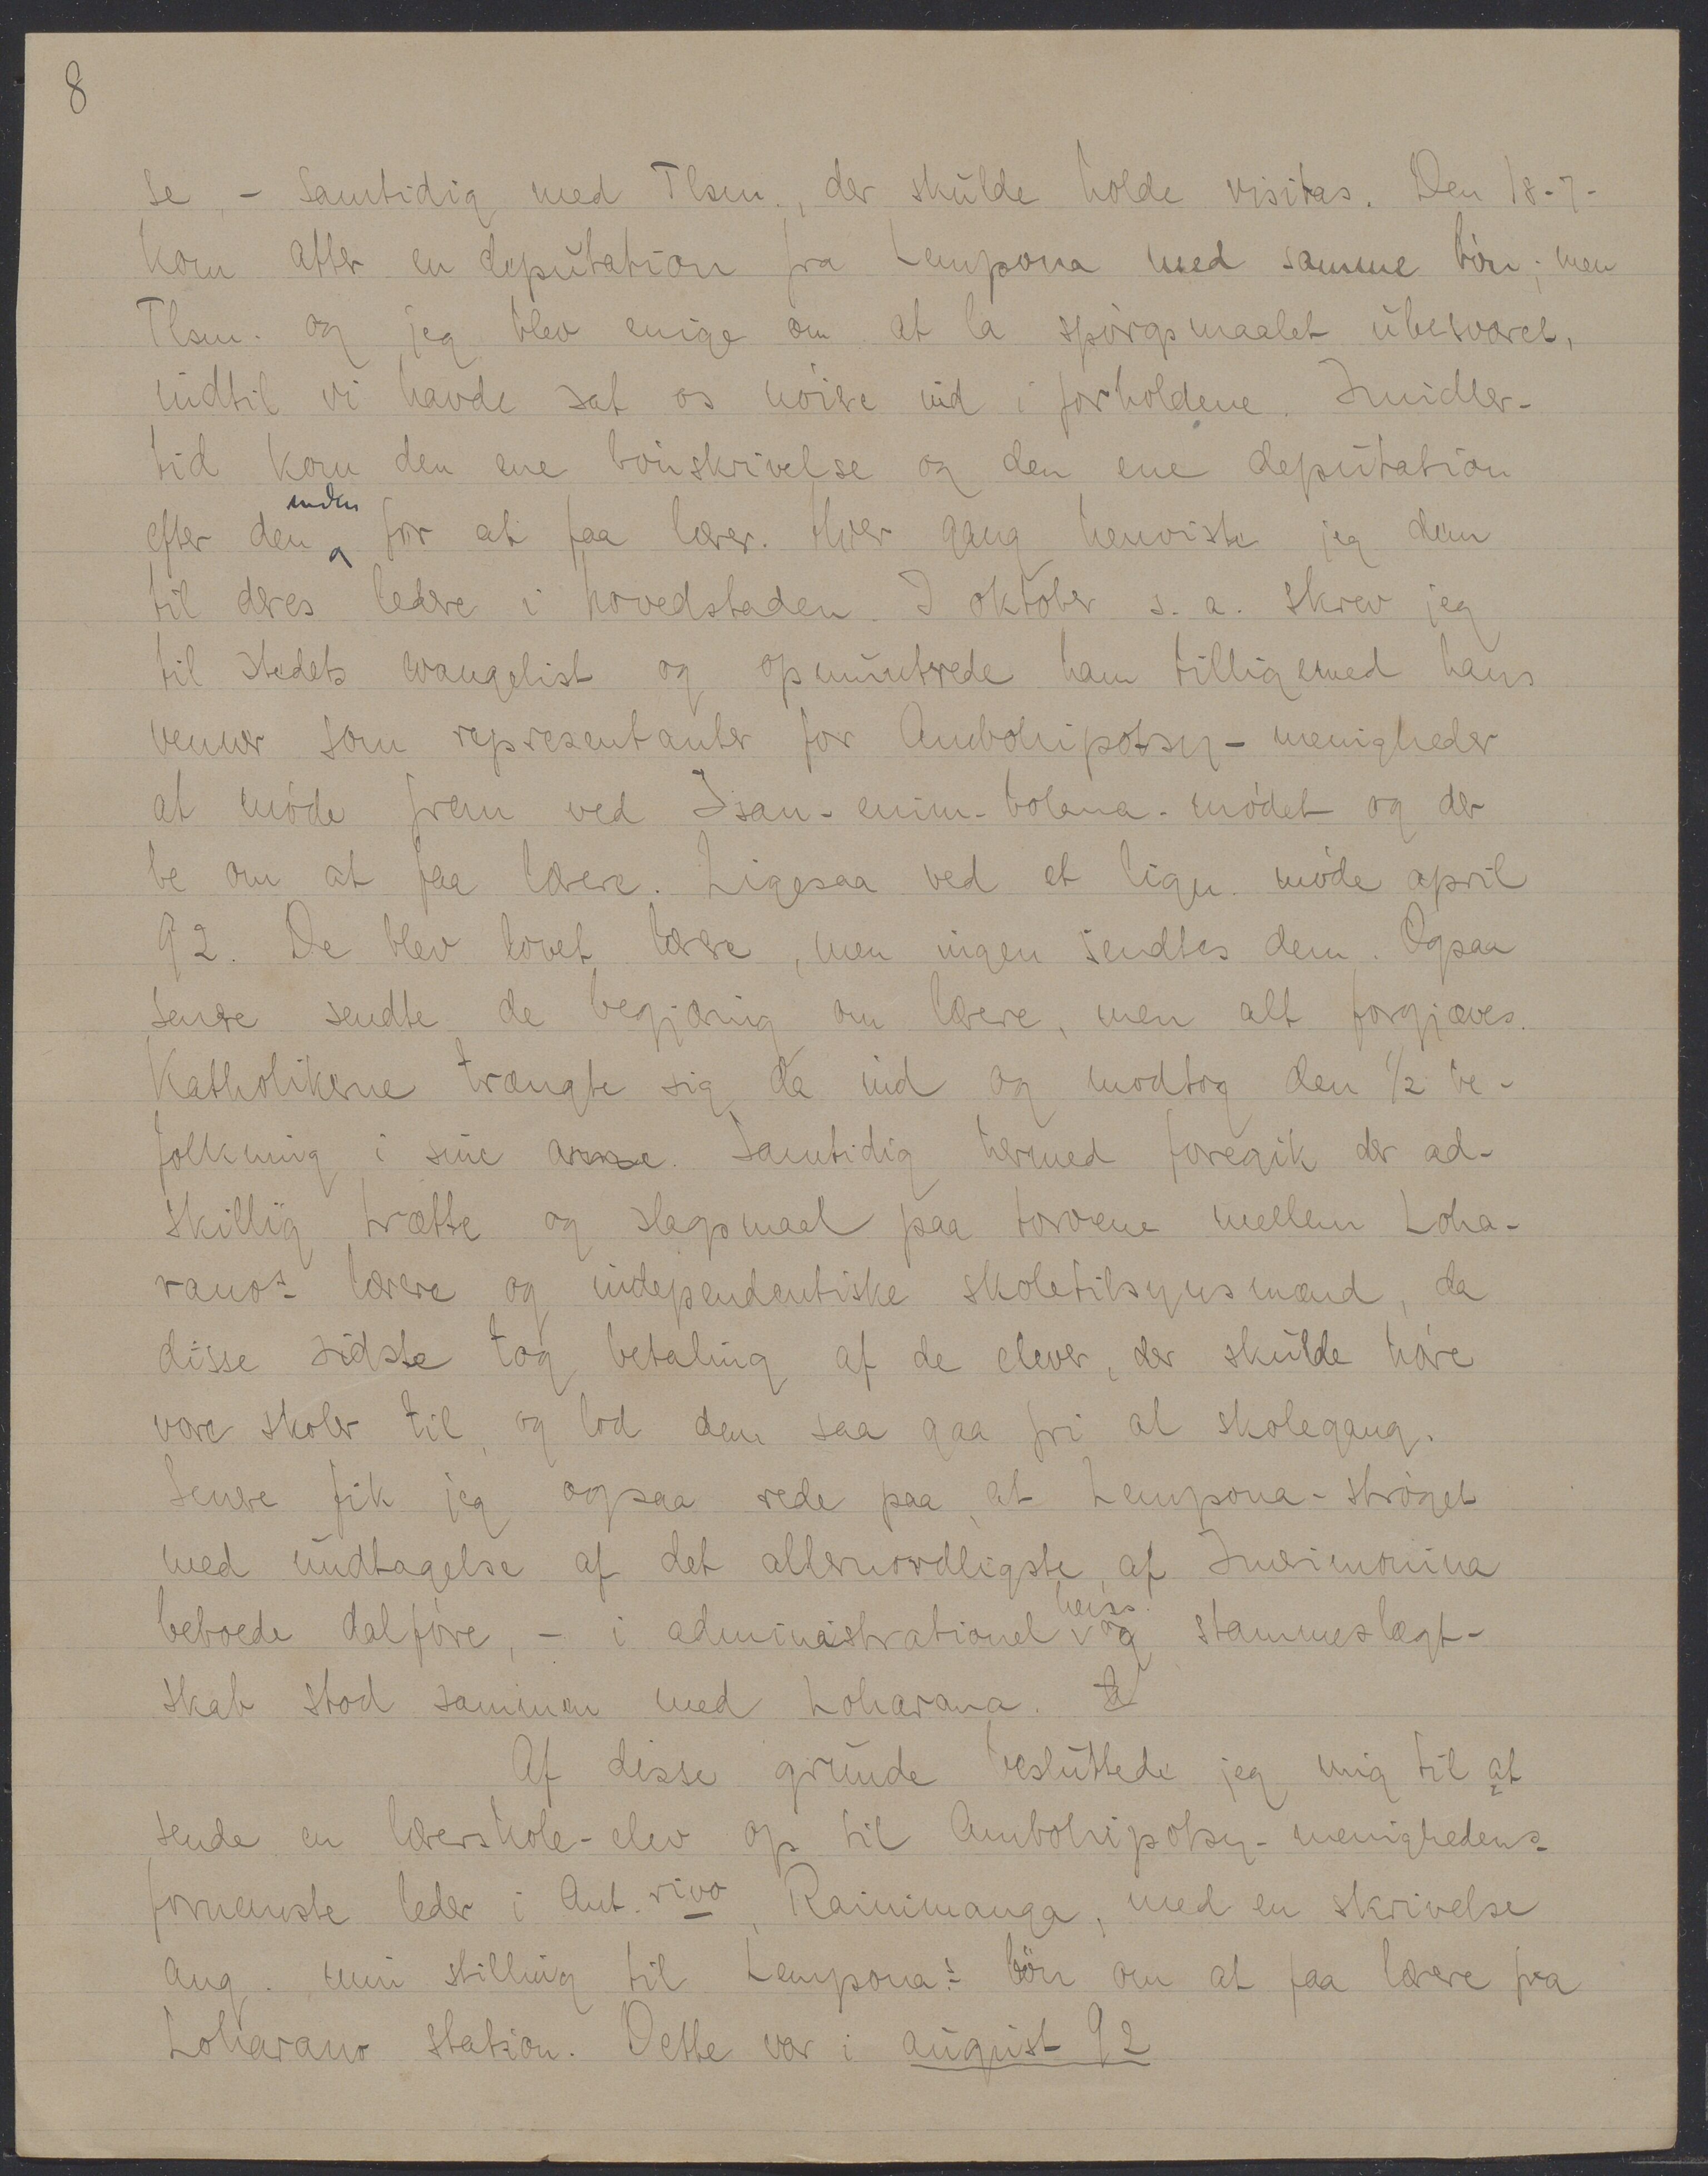 8
se, - Samtidig med Tlsm., der skulde holde visitas. Den 18-7-
kom atter en deputation fra Lempona med samme bön; men
Tlsm. og jeg blev enige om at la spörgsmaalet ubesvaret,
indtil vi havde sat os nöiere ind i forholdene. Imidler-
tid kom den ene bönskrivelse og den ene deputation
efter den anden for at faa lærer. Hver gang henviste jeg dem
til deres ledere i hovedstaden. I oktober s. a. skrev jeg
til stedets evangelist og opmuntrede ham tilligemed hans
venner som representanter for Ambohipotsy-menigheder
at möde frem ved Isan-enim-bolana-mödet og der
be om at faa lærere. Ligesaa ved et lign. möde april
92. De blev lovet lærere, men ingen sendtes dem. Ogsaa
senere sendte de begjæring om lærere, men alt forgjæves.
Katholikerne trængte sig da ind og modtog den 1/2 be-
folkning i sine arme. Samtidig hermed foregik der ad-
skillig trætte og slagsmaal paa torvene mellem Loha-
ranos lærere og independentiske skoletilsynsmænd, da
disse sidste tog betaling af de elever, der skulde höre
vore skoler til, og lod dem saa gaa fri al skolegang.
Senere fik jeg ogsaa rede paa, at Lempona-ströget
med undtagelse af det allernordligste, af Imerimonina
beboede dalföre, - i administrationel hens. og stammeslægt-
skab stod sammen med Loharano.
Af disse grunde besluttede jeg mig til at
sende en lærerskole-elev op til Ambohipotsy-menighedens
fornemste leder i Ant.rivo, Rainimanga, med en skrivelse
ang. min stilling til Lempona's bön om at faa lærere fra
Loharano station. Dette var i august 92